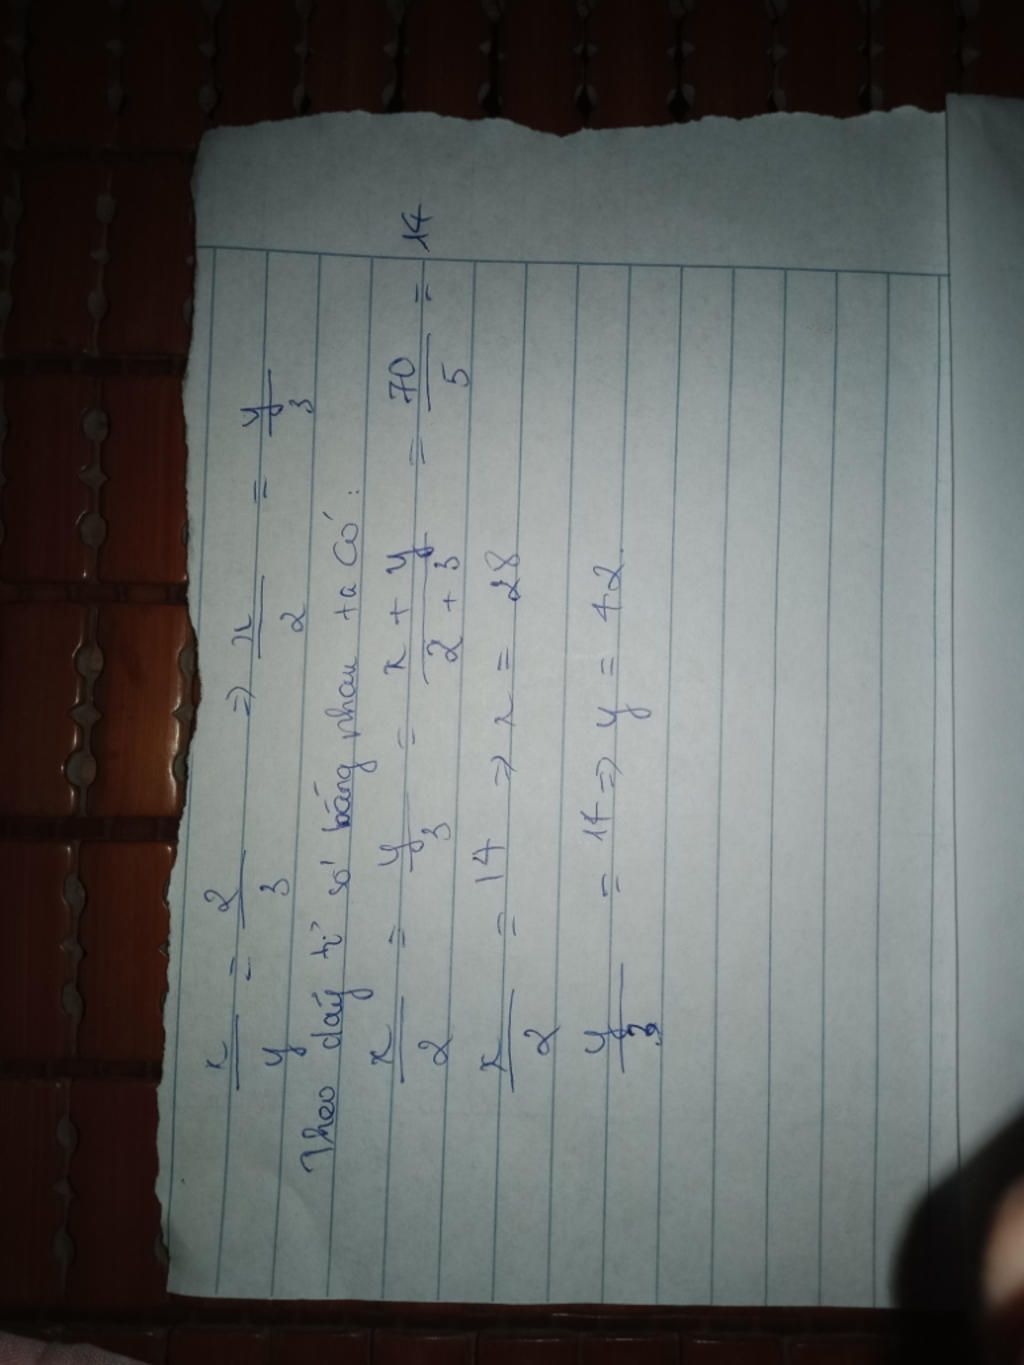 x/y = 2/3 => x/2 = y/3
Theo dãy tỉ số bằng nhau ta có:
x/2 = y/3 = x + y/2 + 3 = 70/5 = 14
x/2 = 14 => x = 28
y/3 = 14 => y = 42